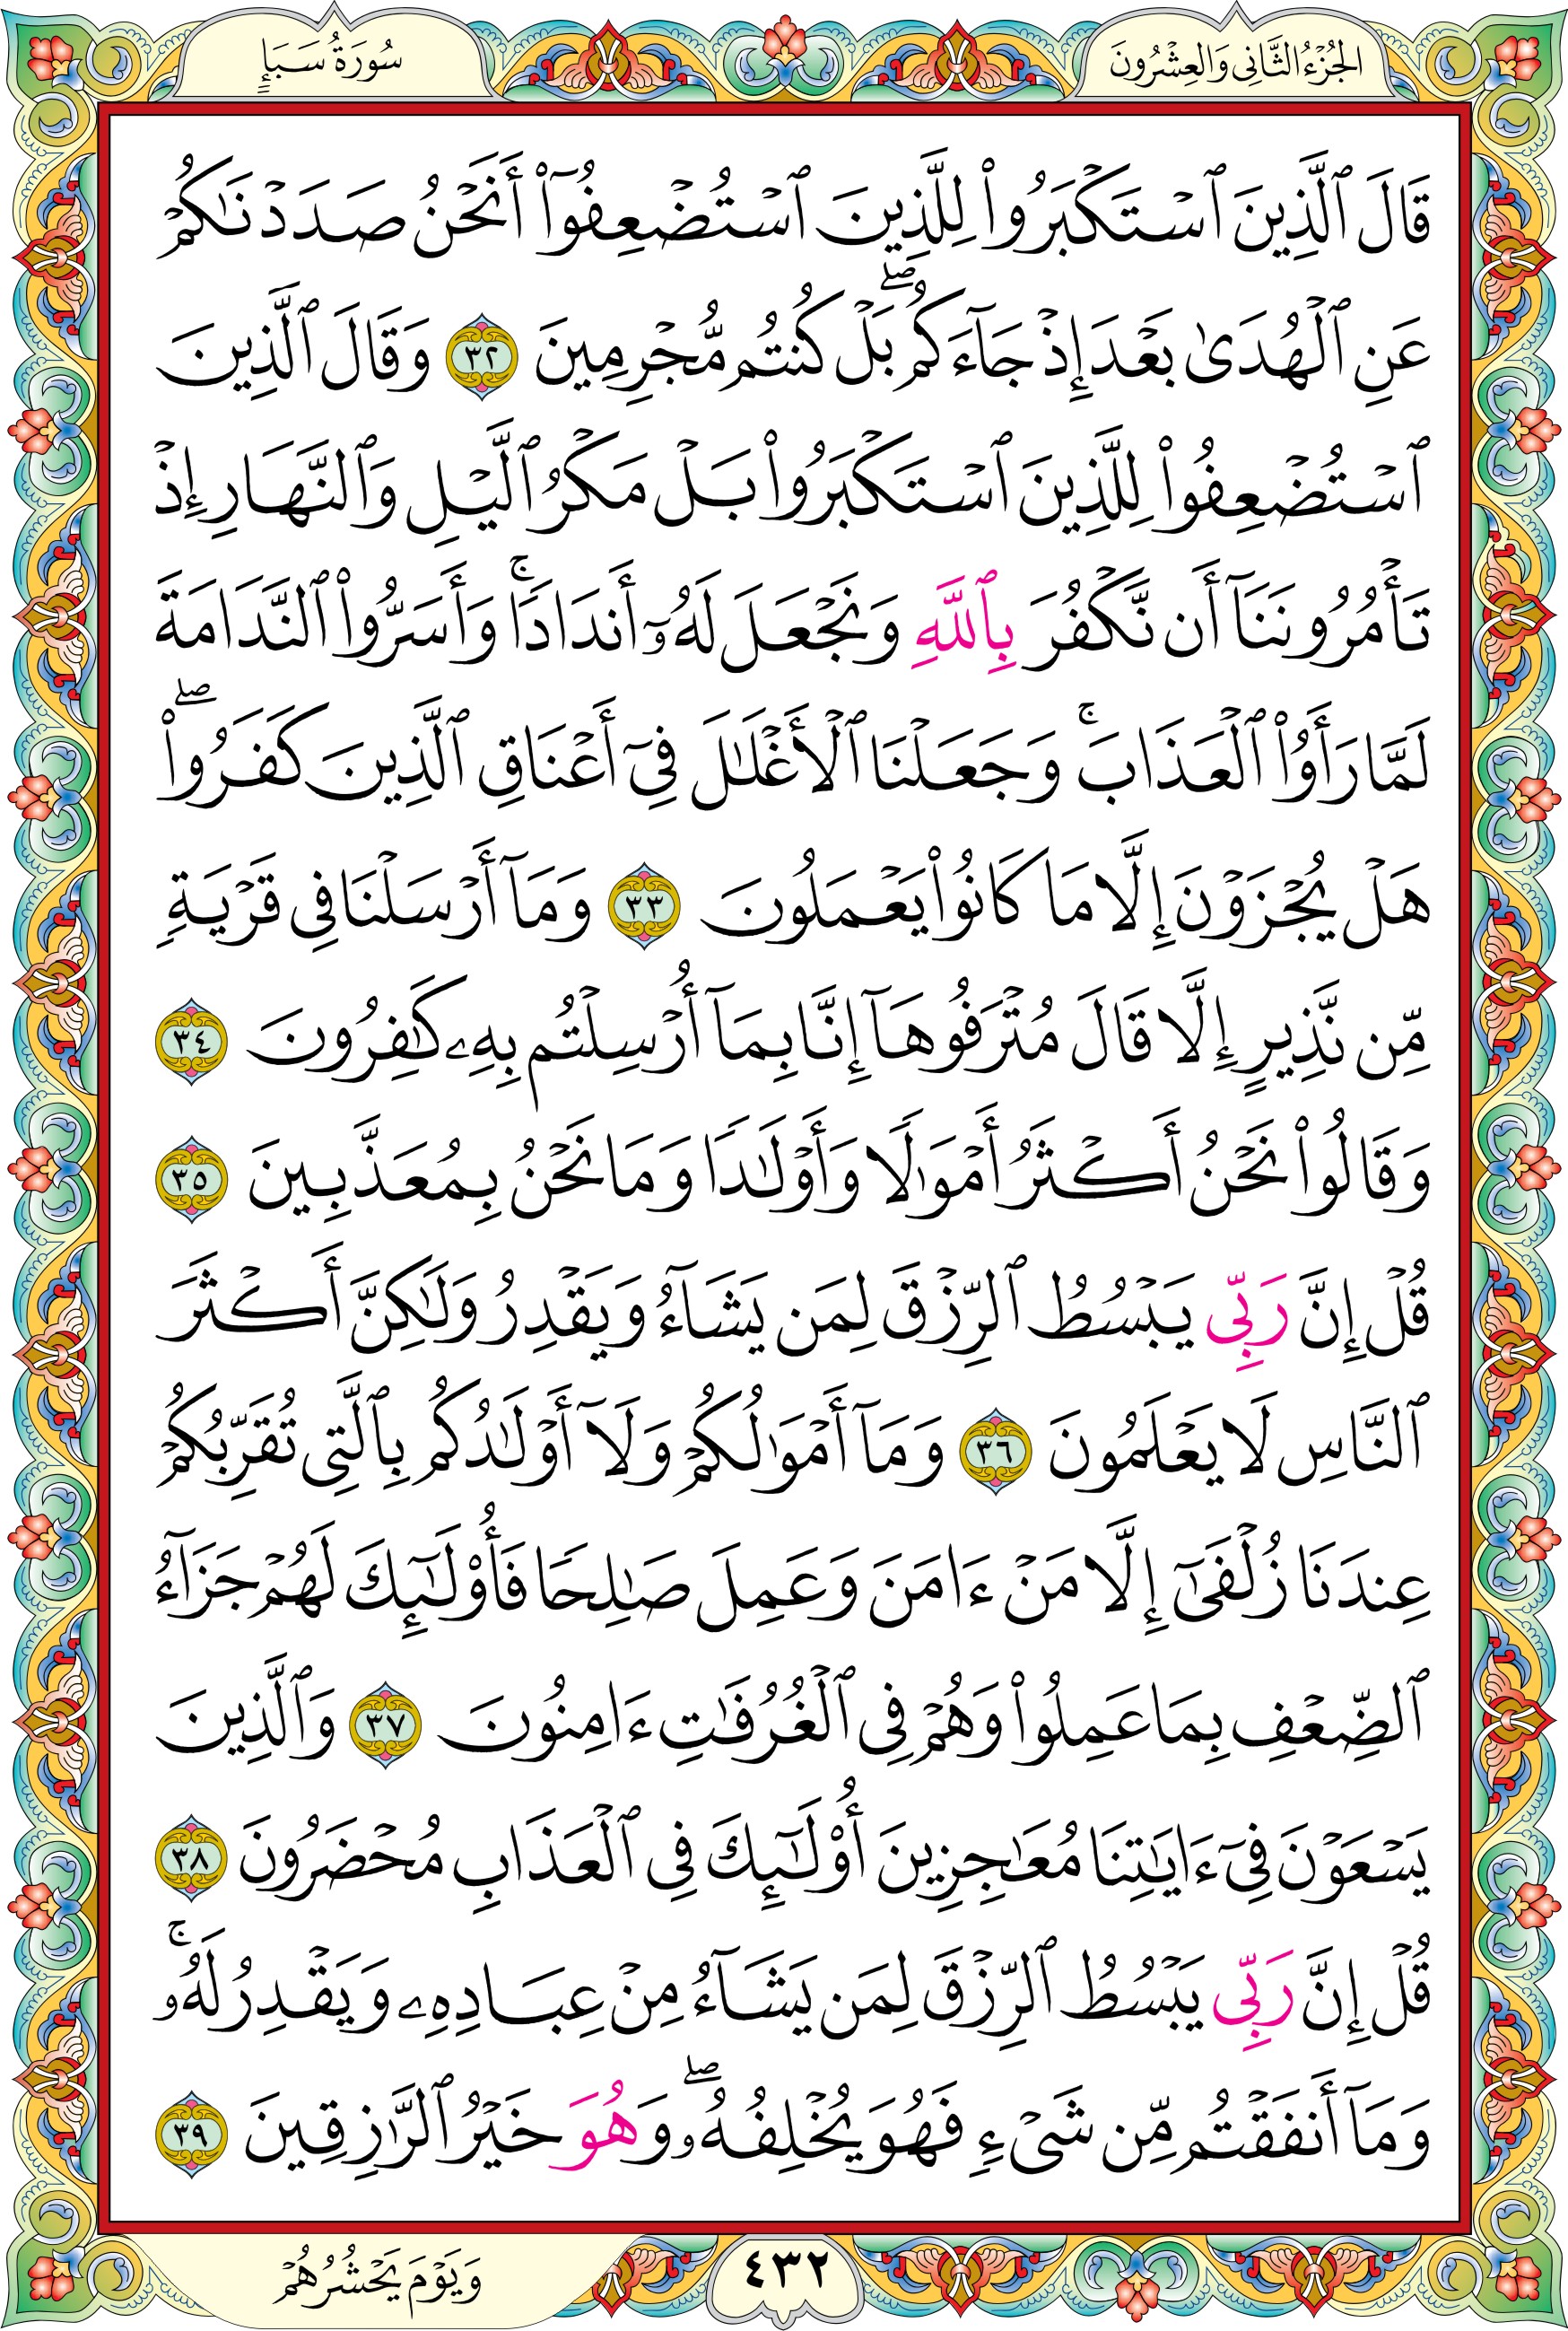 الجُزْءُ الثَّانِي وَالعِشْرُونَ
سُورَةُ سَبَإٍ
قَالَ ٱلَّذِينَ ٱسْتَكْبَرُوا۟ لِلَّذِينَ ٱسْتُضْعِفُوٓا۟ أَنَحْنُ صَدَدْنَـٰكُمْ
عَنِ ٱلْهُدَىٰ بَعْدَ إِذْ جَآءَكُمۖ بَلْ كُنتُم مُّجْرِمِينَ ٣٢ وَقَالَ ٱلَّذِينَ
ٱسْتُضْعِفُوا۟ لِلَّذِينَ ٱسْتَكْبَرُوا۟ بَلْ مَكْرُ ٱلَّيْلِ وَٱلنَّهَارِ إِذْ
تَأْمُرُونَنَآ أَن نَّكْفُرَ بِٱللَّهِ وَنَجْعَلَ لَهُۥٓ أَندَادًاۚ وَأَسَرُّوا۟ ٱلنَّدَامَةَ
لَمَّا رَأَوُا۟ ٱلْعَذَابَۚ وَجَعَلْنَا ٱلْأَغْلَـٰلَ فِىٓ أَعْنَاقِ ٱلَّذِينَ كَفَرُوا۟ۖ
هَلْ يُجْزَوْنَ إِلَّا مَا كَانُوا۟ يَعْمَلُونَ ٣٣ وَمَآ أَرْسَلْنَا فِى قَرْيَةٍ
مِّن نَّذِيرٍ إِلَّا قَالَ مُتْرَفُوهَآ إِنَّا بِمَآ أُرْسِلْتُم بِهِۦ كَـٰفِرُونَ ٣٤
وَقَالُوا۟ نَحْنُ أَكْثَرُ أَمْوَٰلًا وَأَوْلَـٰدًا وَمَا نَحْنُ بِمُعَذَّبِينَ ٣٥
قُلْ إِنَّ رَبِّى يَبْسُطُ ٱلرِّزْقَ لِمَن يَشَآءُ وَيَقْدِرُ وَلَـٰكِنَّ أَكْثَرَ
ٱلنَّاسِ لَا يَعْلَمُونَ ٣٦ وَمَآ أَمْوَٰلُكُمْ وَلَآ أَوْلَـٰدُكُم بِٱلَّتِى تُقَرِّبُكُمْ
عِندَنَا زُلْفَىٰٓ إِلَّا مَنْ ءَامَنَ وَعَمِلَ صَـٰلِحًا فَأُو۟لَـٰٓئِكَ لَهُمْ جَزَآءُ
ٱلضِّعْفِ بِمَا عَمِلُوا۟ وَهُمْ فِى ٱلْغُرُفَـٰتِ ءَامِنُونَ ٣٧ وَٱلَّذِينَ
يَسْعَوْنَ فِىٓ ءَايَـٰتِنَا مُعَـٰجِزِينَ أُو۟لَـٰٓئِكَ فِى ٱلْعَذَابِ مُحْضَرُونَ ٣٨
قُلْ إِنَّ رَبِّى يَبْسُطُ ٱلرِّزْقَ لِمَن يَشَآءُ مِنْ عِبَادِهِۦ وَيَقْدِرُ لَهُۥۚ
وَمَآ أَنفَقْتُم مِّن شَىْءٍ فَهُوَ يُخْلِفُهُۥۖ وَهُوَ خَيْرُ ٱلرَّٰزِقِينَ ٣٩
٤٣٢
وَيَوْمَ يَحْشُرُهُمْ